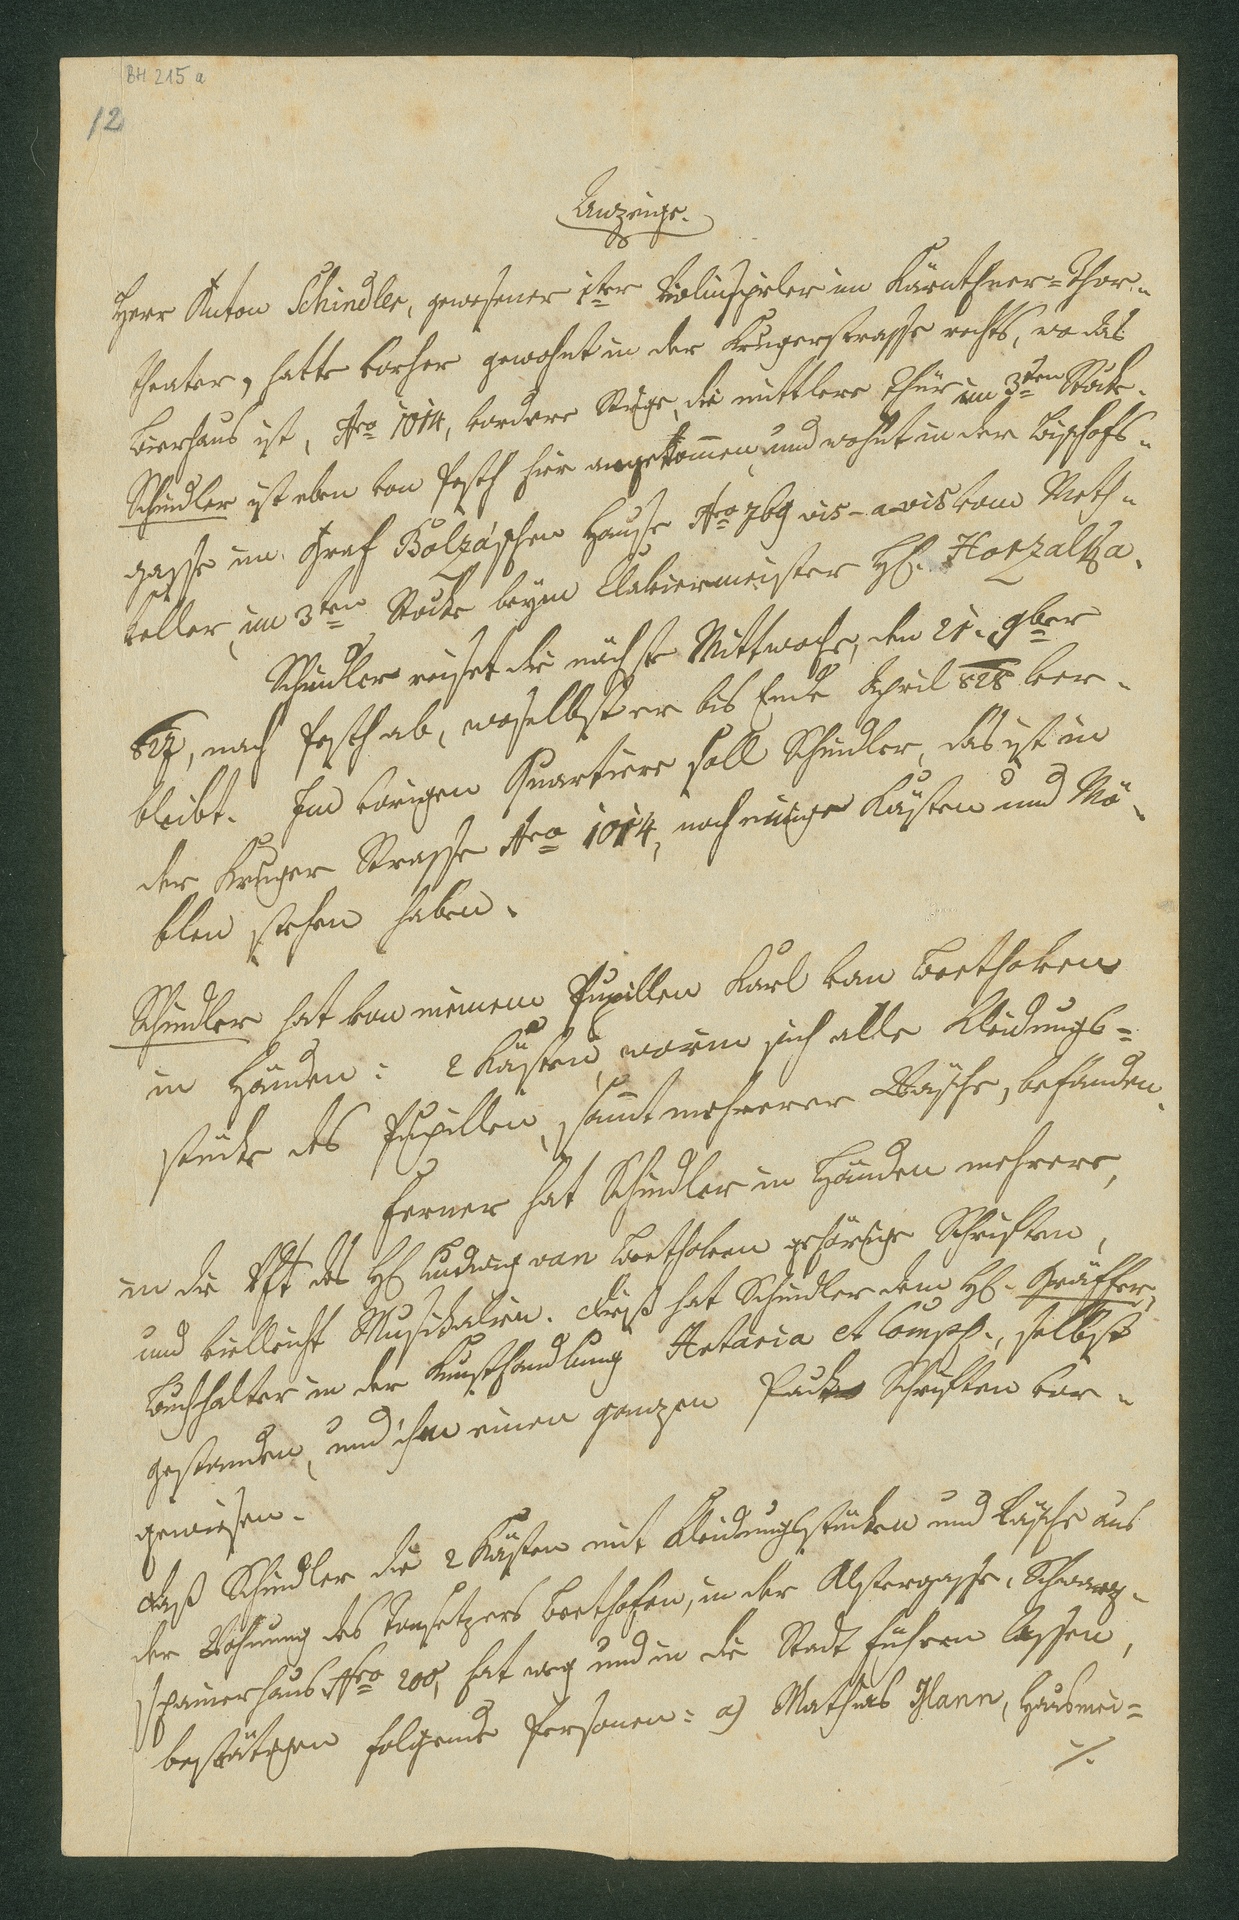 BH 215 a
12
Anzeige.
Herr Anton Schindler, gewesener 1ter Violinspieler im Kärnthner=Thor=
theater, hatte vorher gewohnt in der Krugerstrasse rechts, wo das
Bierhaus ist, Nro 1014, vordere Stiege, die mittlere Thür im 3ten Stocke.
Schindler ist eben von Pesth hier angekommen, und wohnt in der Bischofs=
gasse im Graf Bolza'schen Hause Nro 769 vis-a-vis vom Meth=
keller, im 3ten Stocke beym Claviermeister H. Horzalka.
Schindler reiset die nächste Mittwoche, den 21. 9ber
827, nach Pesth ab, woselbst er bis Ende April 828 ver=
bleibt. Im vorigen Quartiere soll Schindler, das ist in
der Kruger Strasse Nro 1014, noch einige Kästen und Mö=
blen stehen haben.
Schindler hat von meinem Pupillen Karl van Beethoven
in Händen: 2 Kästen, worin sich alle Kleidungs=
stücke des Pupillen, sammt mehrerer Wäsche, befanden.
Ferner hat Schindler in Händen mehrere,
in die Vft des H Ludwig van Beethoven gehörige Schriften,
und vielleicht Musikalien. Dieß hat Schindler dem H. Gräffer,
Buchhalter in der Kunsthandlung Artaria et Comp., selbst
gestanden, und ihm einen ganzen Pack Schriften vor=
gewiesen.
Daß Schindler die 2 Kästen mit Kleidungsstücken und Wäsche aus
der Wohnung des Tonsetzers Beethofen, in der Alstergasse, Schwarz=
spanierhaus Nro 200, hat weg und in die Stadt führen lassen,
bestätigen folgende Personen: a) Mathias Hann, Hausmei=
./.